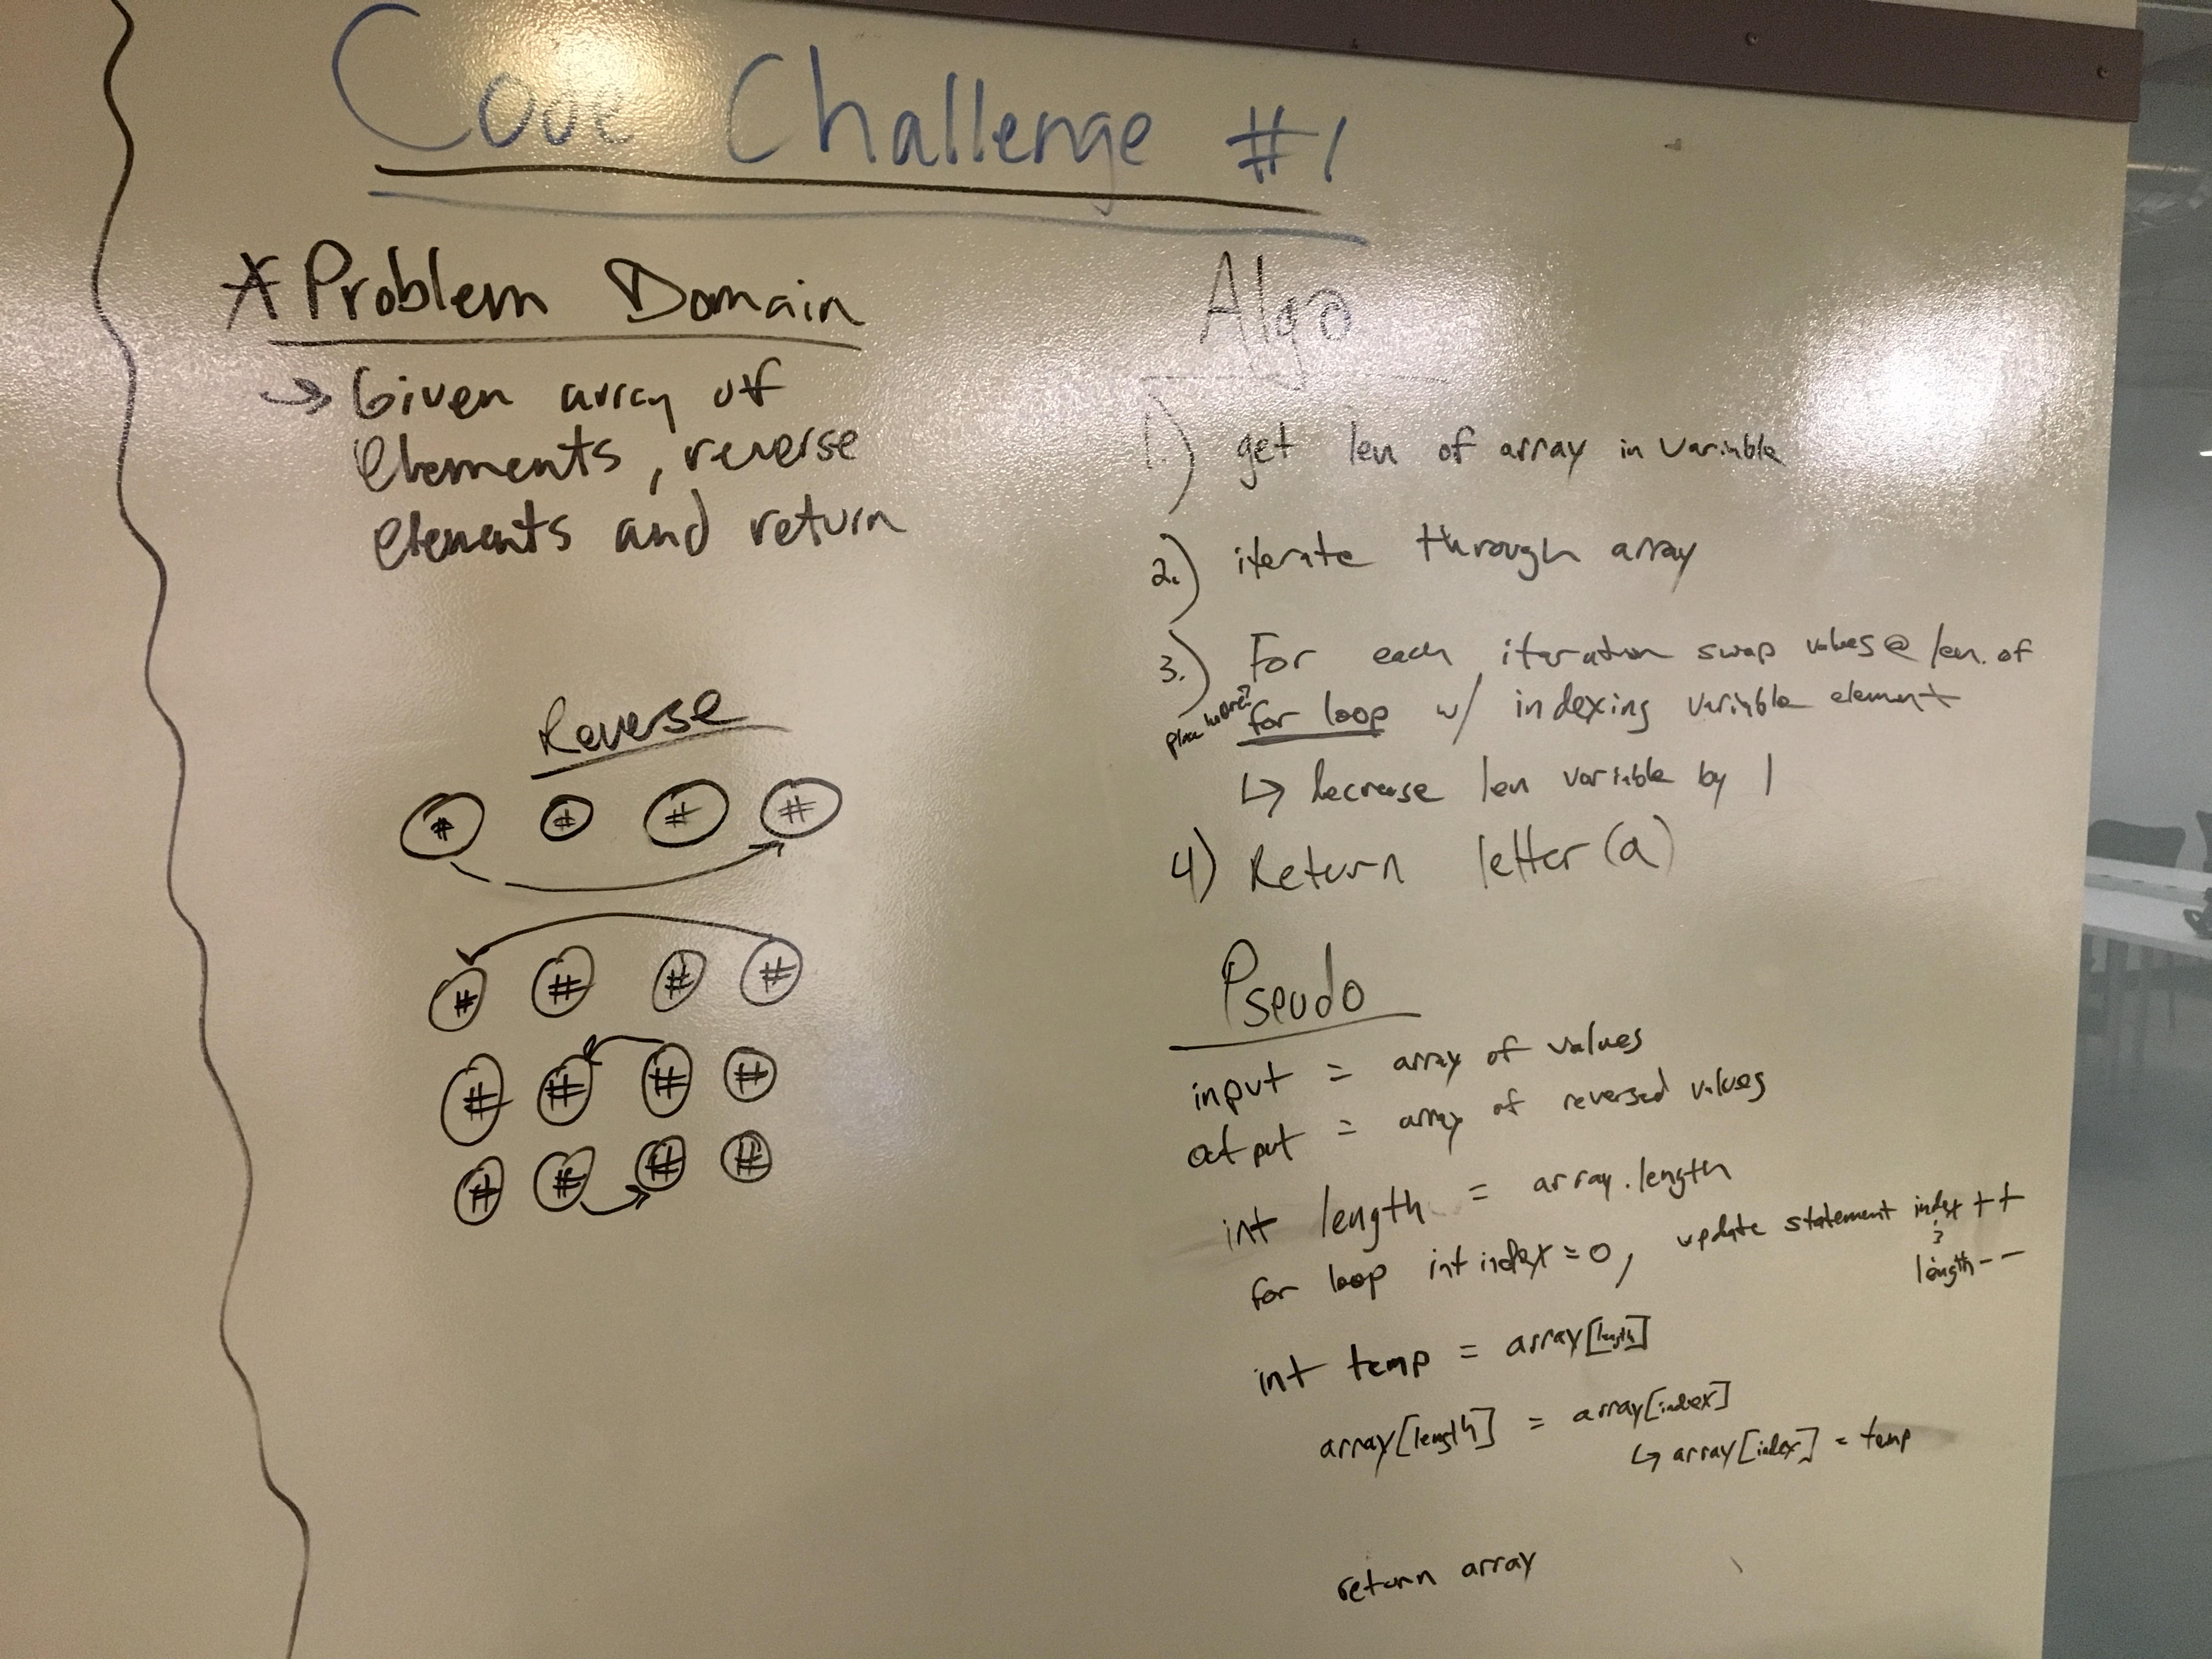 Code Challenge #1
* Problem Domain
→ Given array of
elements, reverse
elements and return
Reverse
# # # #
# # # #
# # # #
# # # #
Algo
1.) get len of array in variable
2.) iterate through array
3.) For each iteration swap values @ len. of
for loop w/ indexing variable element
↳ decrease len variable by 1
4) Return letter (a)
Pseudo
input = array of values
output = array of reversed values
int length = array.length
for loop int index = 0, update statement index ++
length--
int temp = array[length]
array[length] = array[index]
↳ array[index] = temp
return array